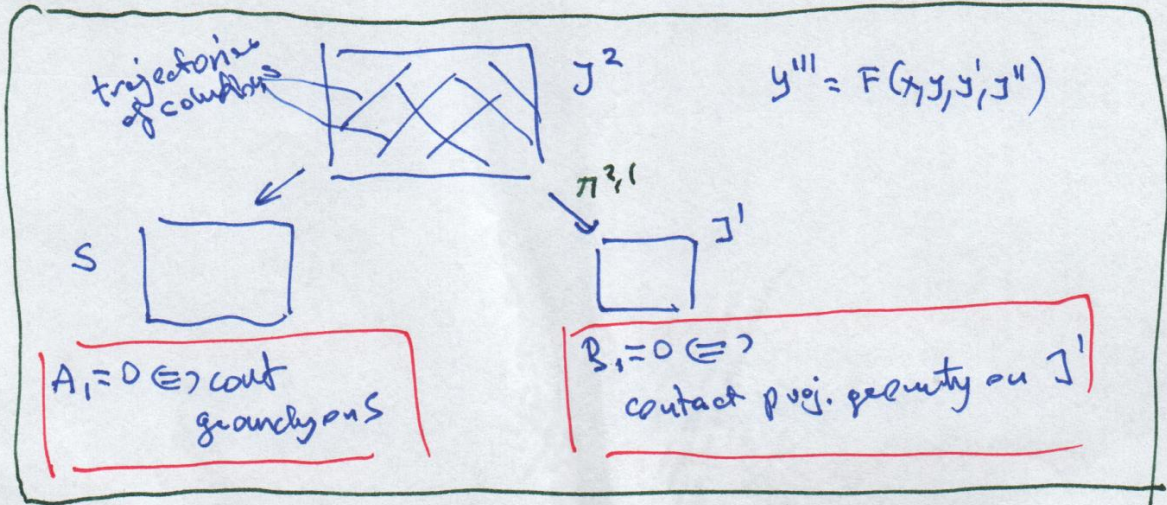 trajectories
of solutions
J²
y''' = F(x,y,y',y'')
π²,¹
S
J¹
A₁=0 ⇔ conf
geometry on S
B₁=0 ⇔
contact proj. geometry on J¹